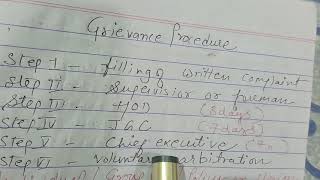 Grievance Procedure
Step I - filling of written complaint
Step II - supervisior or foreman
Step III - HOD (3 days)
Step IV - JGC (7 days)
Step V - Chief executive
Step VI - voluntary arbitration